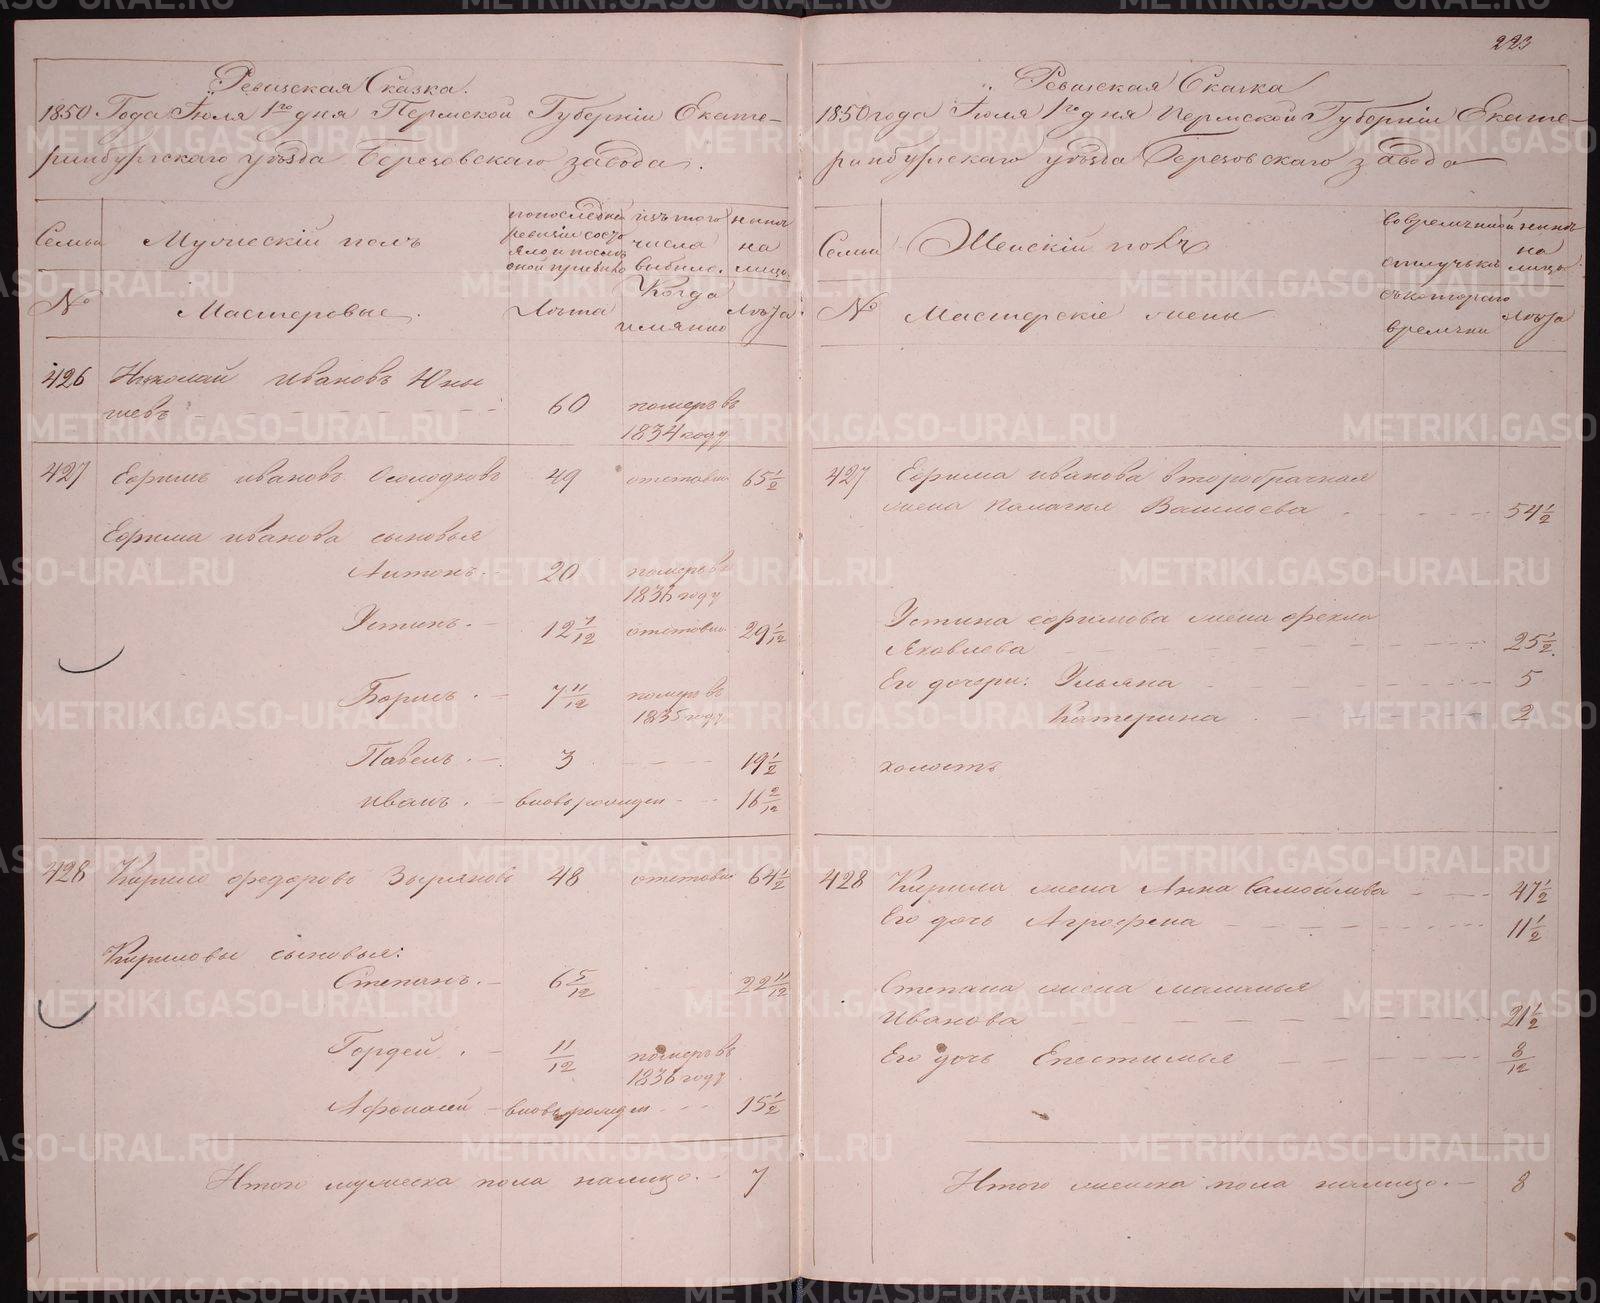 223
Ревизская Сказка.
1850 Года Іюля 1го дня Пермской Губерніи Екате-
ринбургскаго уѣзда Березовскаго завода.
Семьи
Мужескій полъ
по последней ревизіи состояло и после оной прибыло
изъ того числа выбыло.
ныне на лицо
№
Мастеровые.
Лѣта
Когда имянно
Лѣта
426 Николай Ивановъ Юны
шевъ 60 померъ въ
1834 году
427 Ефримъ Ивановъ Осолодковъ 49 65 1/2
Ефрима Иванова сыновья
Антонъ. 20 померъ въ
1836 году
Устинъ. 12 7/12 29 1/12
Борисъ. 7 11/12 померъ въ
1835 году
Павелъ. 3 19 1/2
Иванъ. вновь рожден 16 2/12
428 Кирило Федоровъ Зыряновъ 48 64 1/2
Кириловы сыновья:
Степанъ. 6 5/12 22 11/12
Гордей. 11/12 померъ въ
1836 году
Афонасей вновь рожден 15 1/2
Итого мужеска пола налицо. 7
Ревизская Сказка
1850 года Іюля 1го дня Пермской Губерніи Екате-
ринбургскаго уѣзда Березовскаго завода
Семьи
Женскій полъ
во временной отлучьке
ныне на лицо
№
Мастерскіе жены
съ котораго времени
Лѣта
427 Ефрима Иванова второбрачная
жена Палагея Васильева 54 1/2
Устина Ефримова жена Фекла
Яковлева 25 1/2
Его дочери: Ульяна 5
Катерина 2
холостъ
428 Кирила жена Анна Самойлова 47 1/2
Его дочь Агрофена 11 1/2
Степана жена Маланья
Иванова 21 1/2
Его дочь Епестимья 8/12
Итого женска пола налицо. 8
METRIKI.GASO-URAL.RU